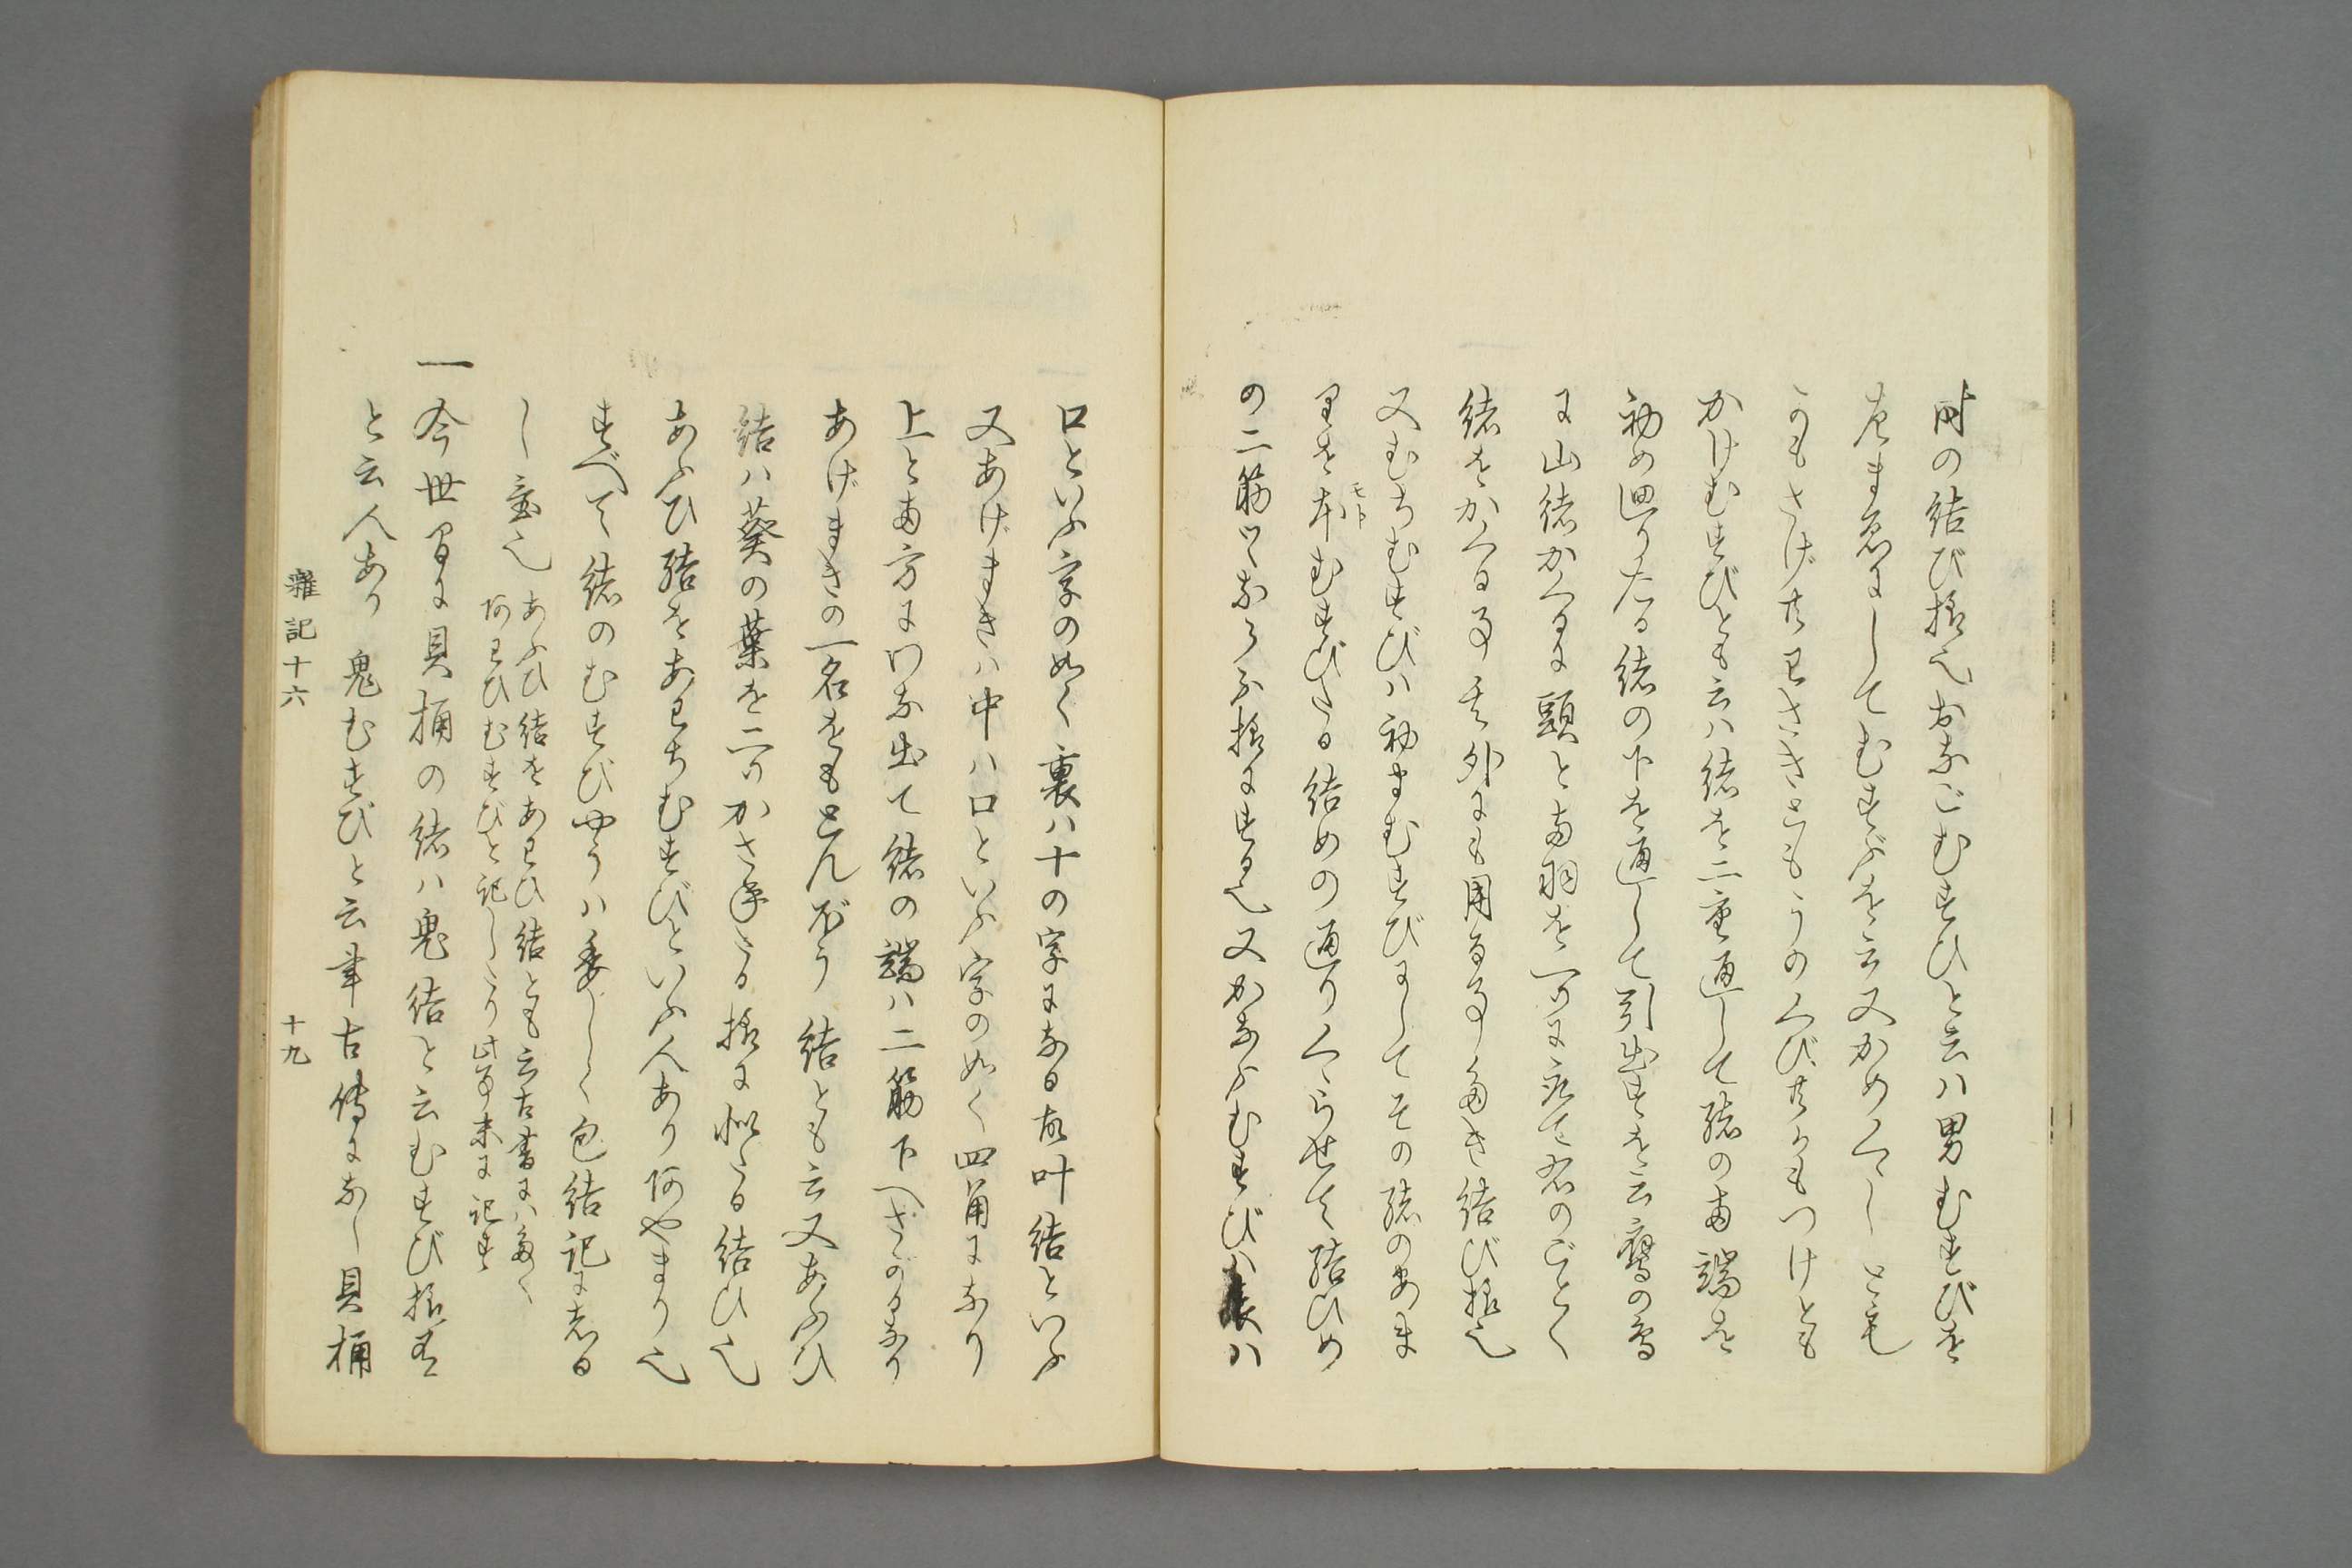 時の結び様也おなごむすひと云ハ男むすびを
左まゑにしてむすぶを云又かめくゝしとも
こもさげ共わさきともうのくび共つけとも
かけむすびとも云ハ緒を二重通して緒の両端を
初め廻りたる緒の下を通して引出すを云鷹の鳥
に山緒かくるに頭と両羽を一ツに取て右のごとく
緒をかくる事其外にも用る事多き結び様也
又むちむすびハ初まむすびにしてその緒のあま
りを本むすびたる結めの通りくゝらせて結ひめ
モト
の二筋ツヽならふ様にする也又かなふむすびハ表ハ
口といふ字の如く裏ハ十の字になる故叶結といふ
又あげまきハ中ハ口といふ字の如く四角になり
上と両方にわな出て緒の端ハ二筋下へさがるなり
あげまきの一名をもとんぼう結とも云又あふひ
結ハ葵の葉を二ツかさねたる様に似たる結ひ也
あふひ結をあわぢむすびといふ人あり何やまり也
すべて緒のむすびやうハ委しく包結記にしる
し置也
あふひ結をあわひ結とも云古書にハ多く
何わひむすびと記したり此事末に記す
一今世間に貝桶の緒ハ鬼結と云むすび様有
と云人あり鬼むすびと云事古傳になし貝桶
雜記十六
十九